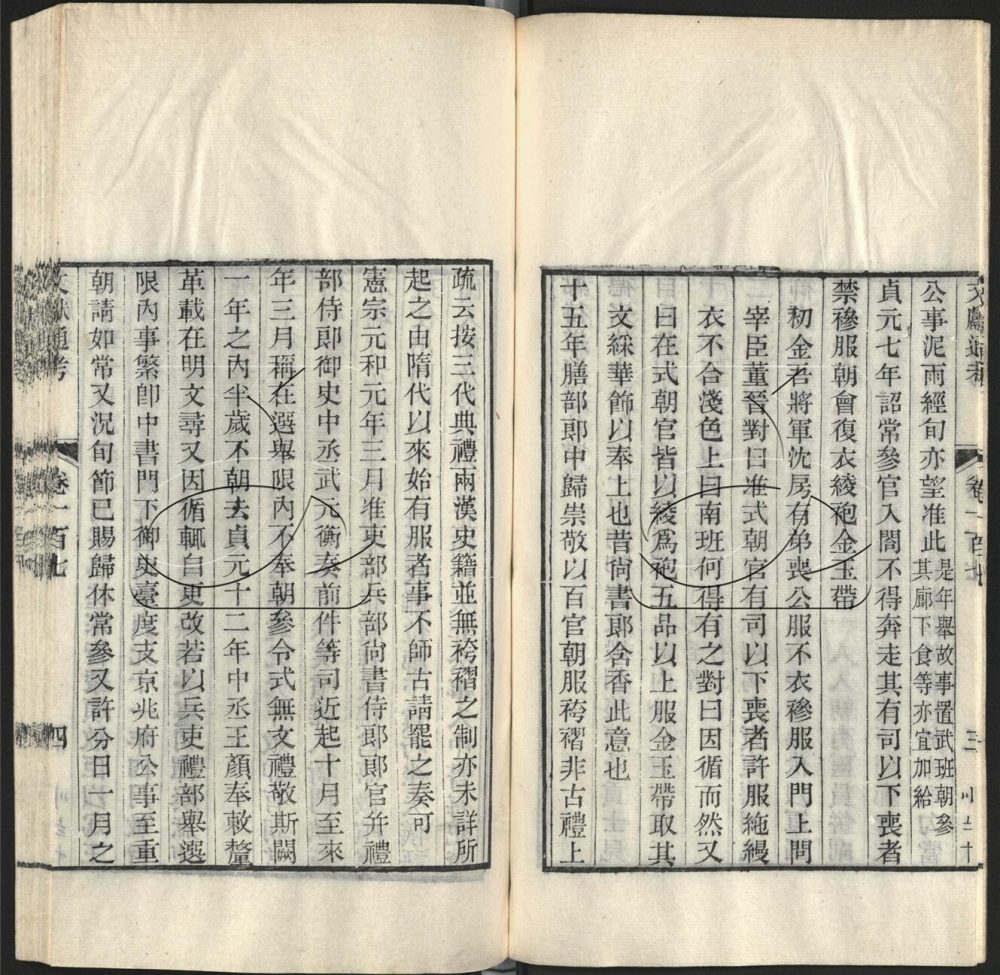 文獻通考 卷一百七 三
公事泥雨經旬亦望准此是年舉故事置武班朝參
其廊下食等亦宜加給
貞元七年詔常參官入閤不得奔走其有司以下喪者
禁襂服朝會復衣綾袍金玉帶
初金吾將軍沈房有弟喪公服不衣襂服入門上問
宰臣董晉對曰准式朝官有司以下喪者許服絁縵
衣不合淺色上曰南班何得有之對曰因循而然又
曰在式朝官皆以綾爲袍五品以上服金玉帶取其
文綵華飾以奉上也昔尙書郞含香此意也
十五年膳部郞中歸崇敬以百官朝服袴褶非古禮上
疏云按三代典禮兩漢史籍並無袴褶之制亦未詳所
起之由隋代以來始有服者事不師古請罷之奏可
憲宗元和元年三月准吏部兵部尙書侍郞郞官幷禮
部侍郞御史中丞武元衡奏前件等司近起十月至來
年三月稱在選舉限內不奉朝參令式無文禮敬斯闕
一年之內半歲不朝去貞元十二年中丞王顏奉敕釐
革載在明文尋又因循輒自更改若以兵吏禮部舉選
限內事繁卽中書門下御史臺度支京兆府公事至重
朝請如常又況旬節已賜歸休常參又許分日一月之
文獻通考 卷一百七 四